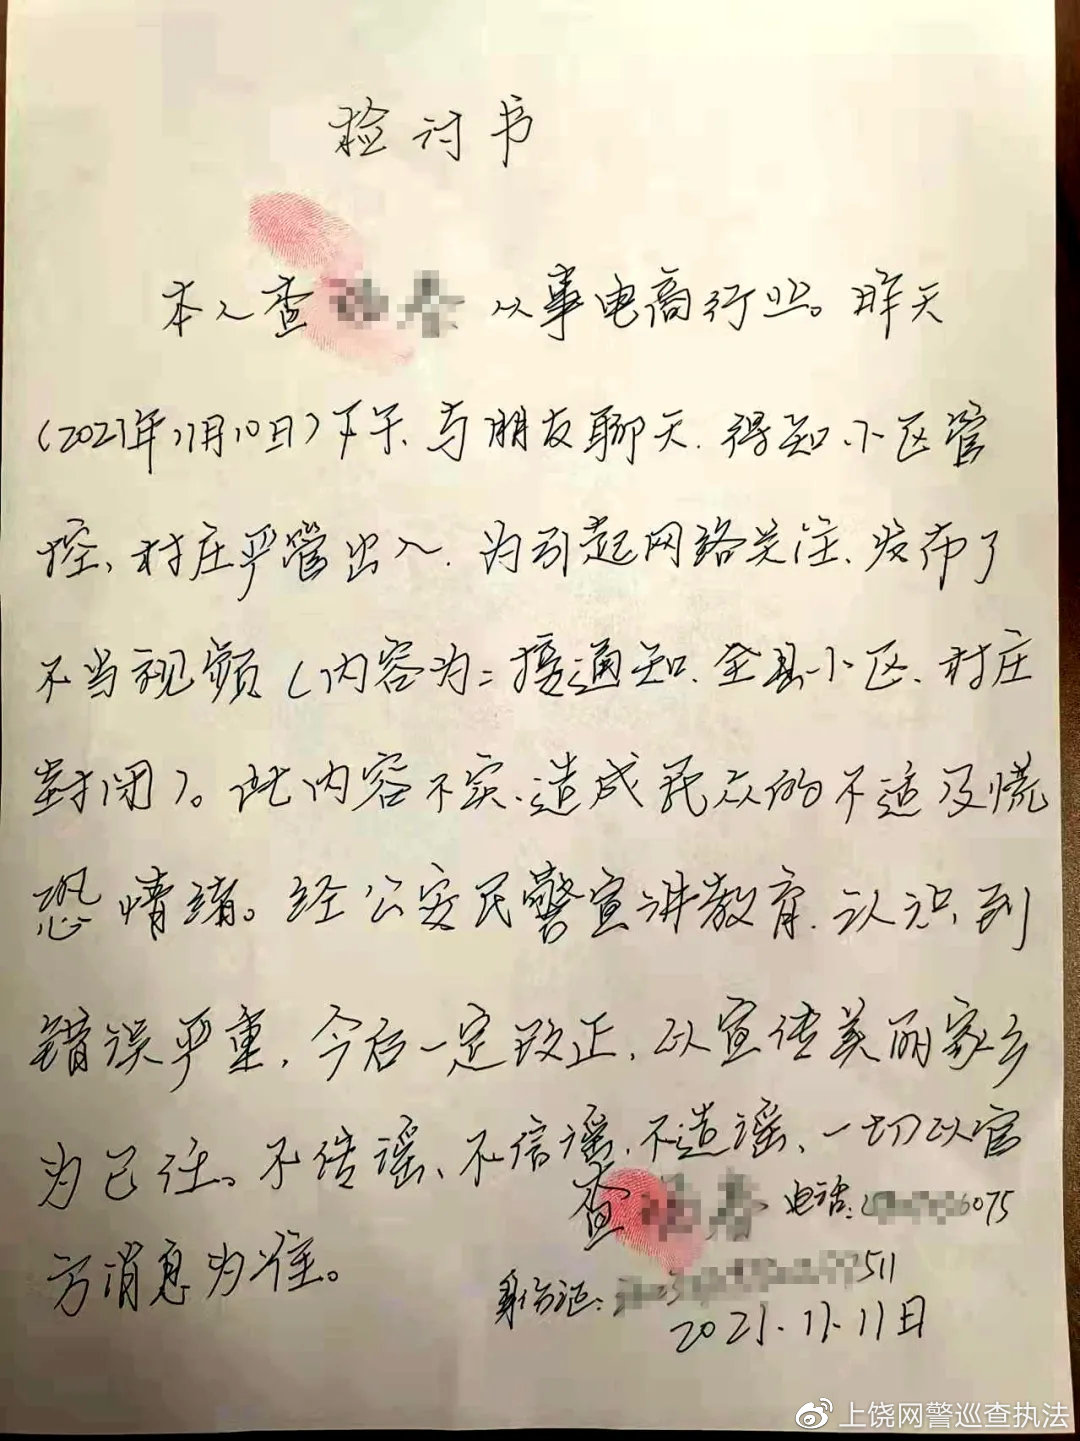 检讨书
本人查 从事电商行业。昨天
(2021年11月10日)下午、与朋友聊天.得知小区管
控、村庄严管出入.为引起网络关注、发布了
不当视频(内容为:接通知.全县小区、村庄
封闭)。此内容不实、造成民众的不适及慌
恐情绪。经公安民警宣讲教育.认识到
错误严重,今后一定改正,以宣传美丽家乡
为己任。不传谣、不信谣、不造谣、一切以官
方消息为准。
查 电话: 6075
身份证: 511
2021.11.11日
上饶网警巡查执法